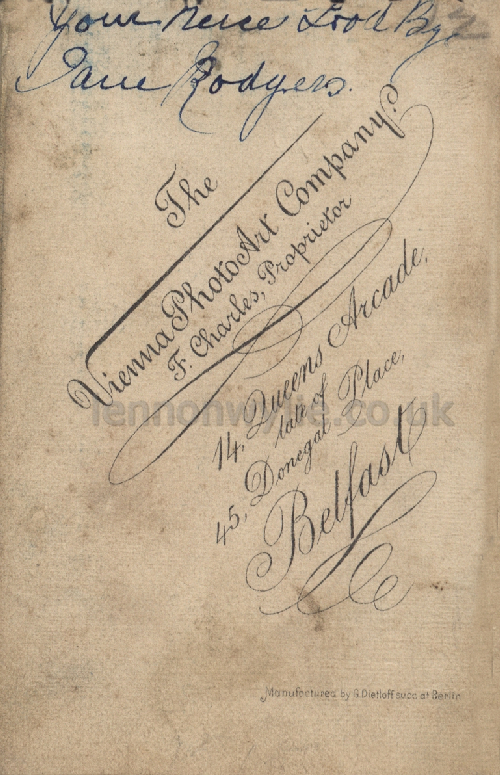 your niece Good Bye
Jane Rodgers.
The
Vienna Photo Art Company
F. Charles, Proprietor
14, Queens Arcade,
late of
45, Donegal Place,
Belfast
lennonwylie.co.uk
Manufactured by G Dietloff succ at Berlin